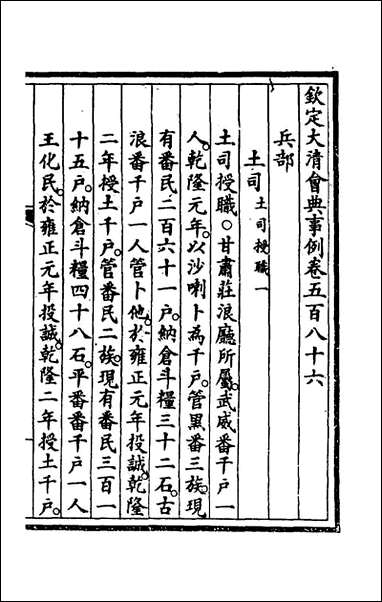 欽定大清會典事例卷五百八十六
兵部
土司 土司授職一
土司授職○甘肅莊浪廳所屬武威番千戶一
人。乾隆元年。以沙喇卜為千戶。管黑番三族。現
有番民二百六十一戶。納倉斗糧三十二石。古
浪番千戶一人管卜他。於雍正元年投誠。乾隆
二年授土千戶。管番民二族。現有番民三百一
十五戶。納倉斗糧四十八石。平番番千戶一人
王化民。於雍正元年投誠。乾隆二年授土千戶。